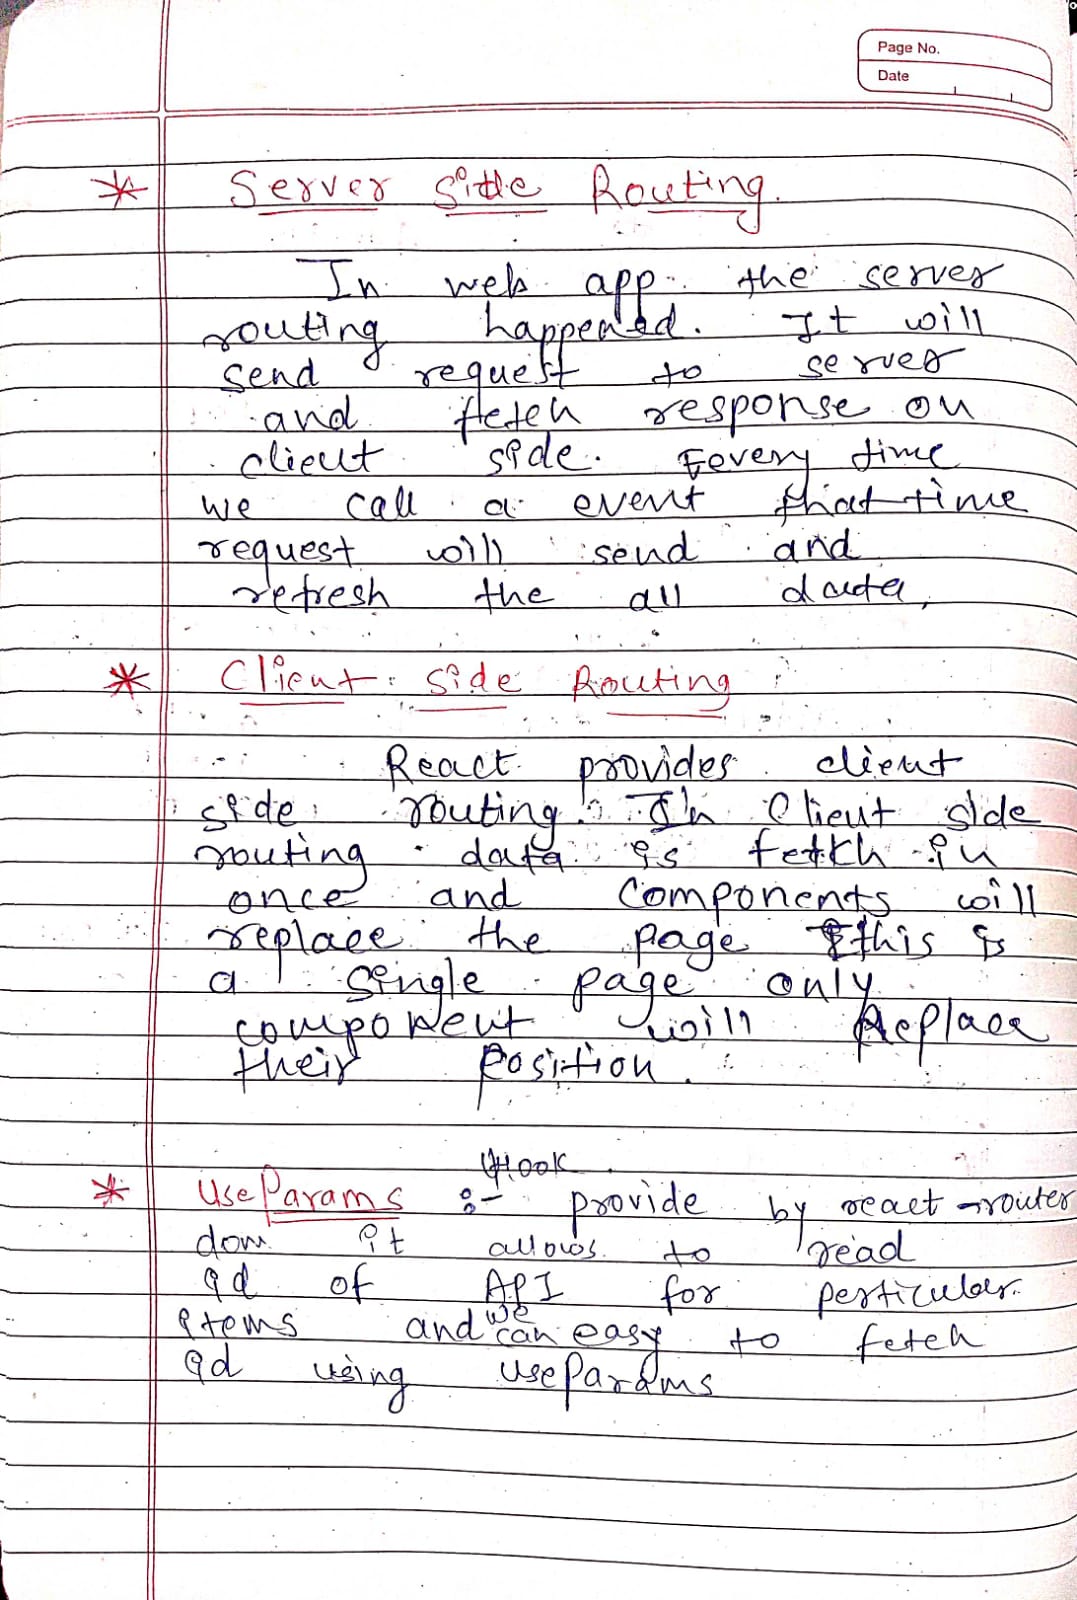 Page No.
Date
* Server Side Routing.
In web app the server
routing happened. It will
send request to server
and fetch response on
client side. Every time
we call a event that time
request will send and
refresh the all data,
* Client side Routing
React provides client
side routing. In Client side
routing data is fetch in
once and components will
replace the page this is
a single page only
component will Replace
their Position.
Hook
* UseParams :- provide by react-router
dom it allows to read
id of API for perticular
items and we can easy to fetch
id using useParams